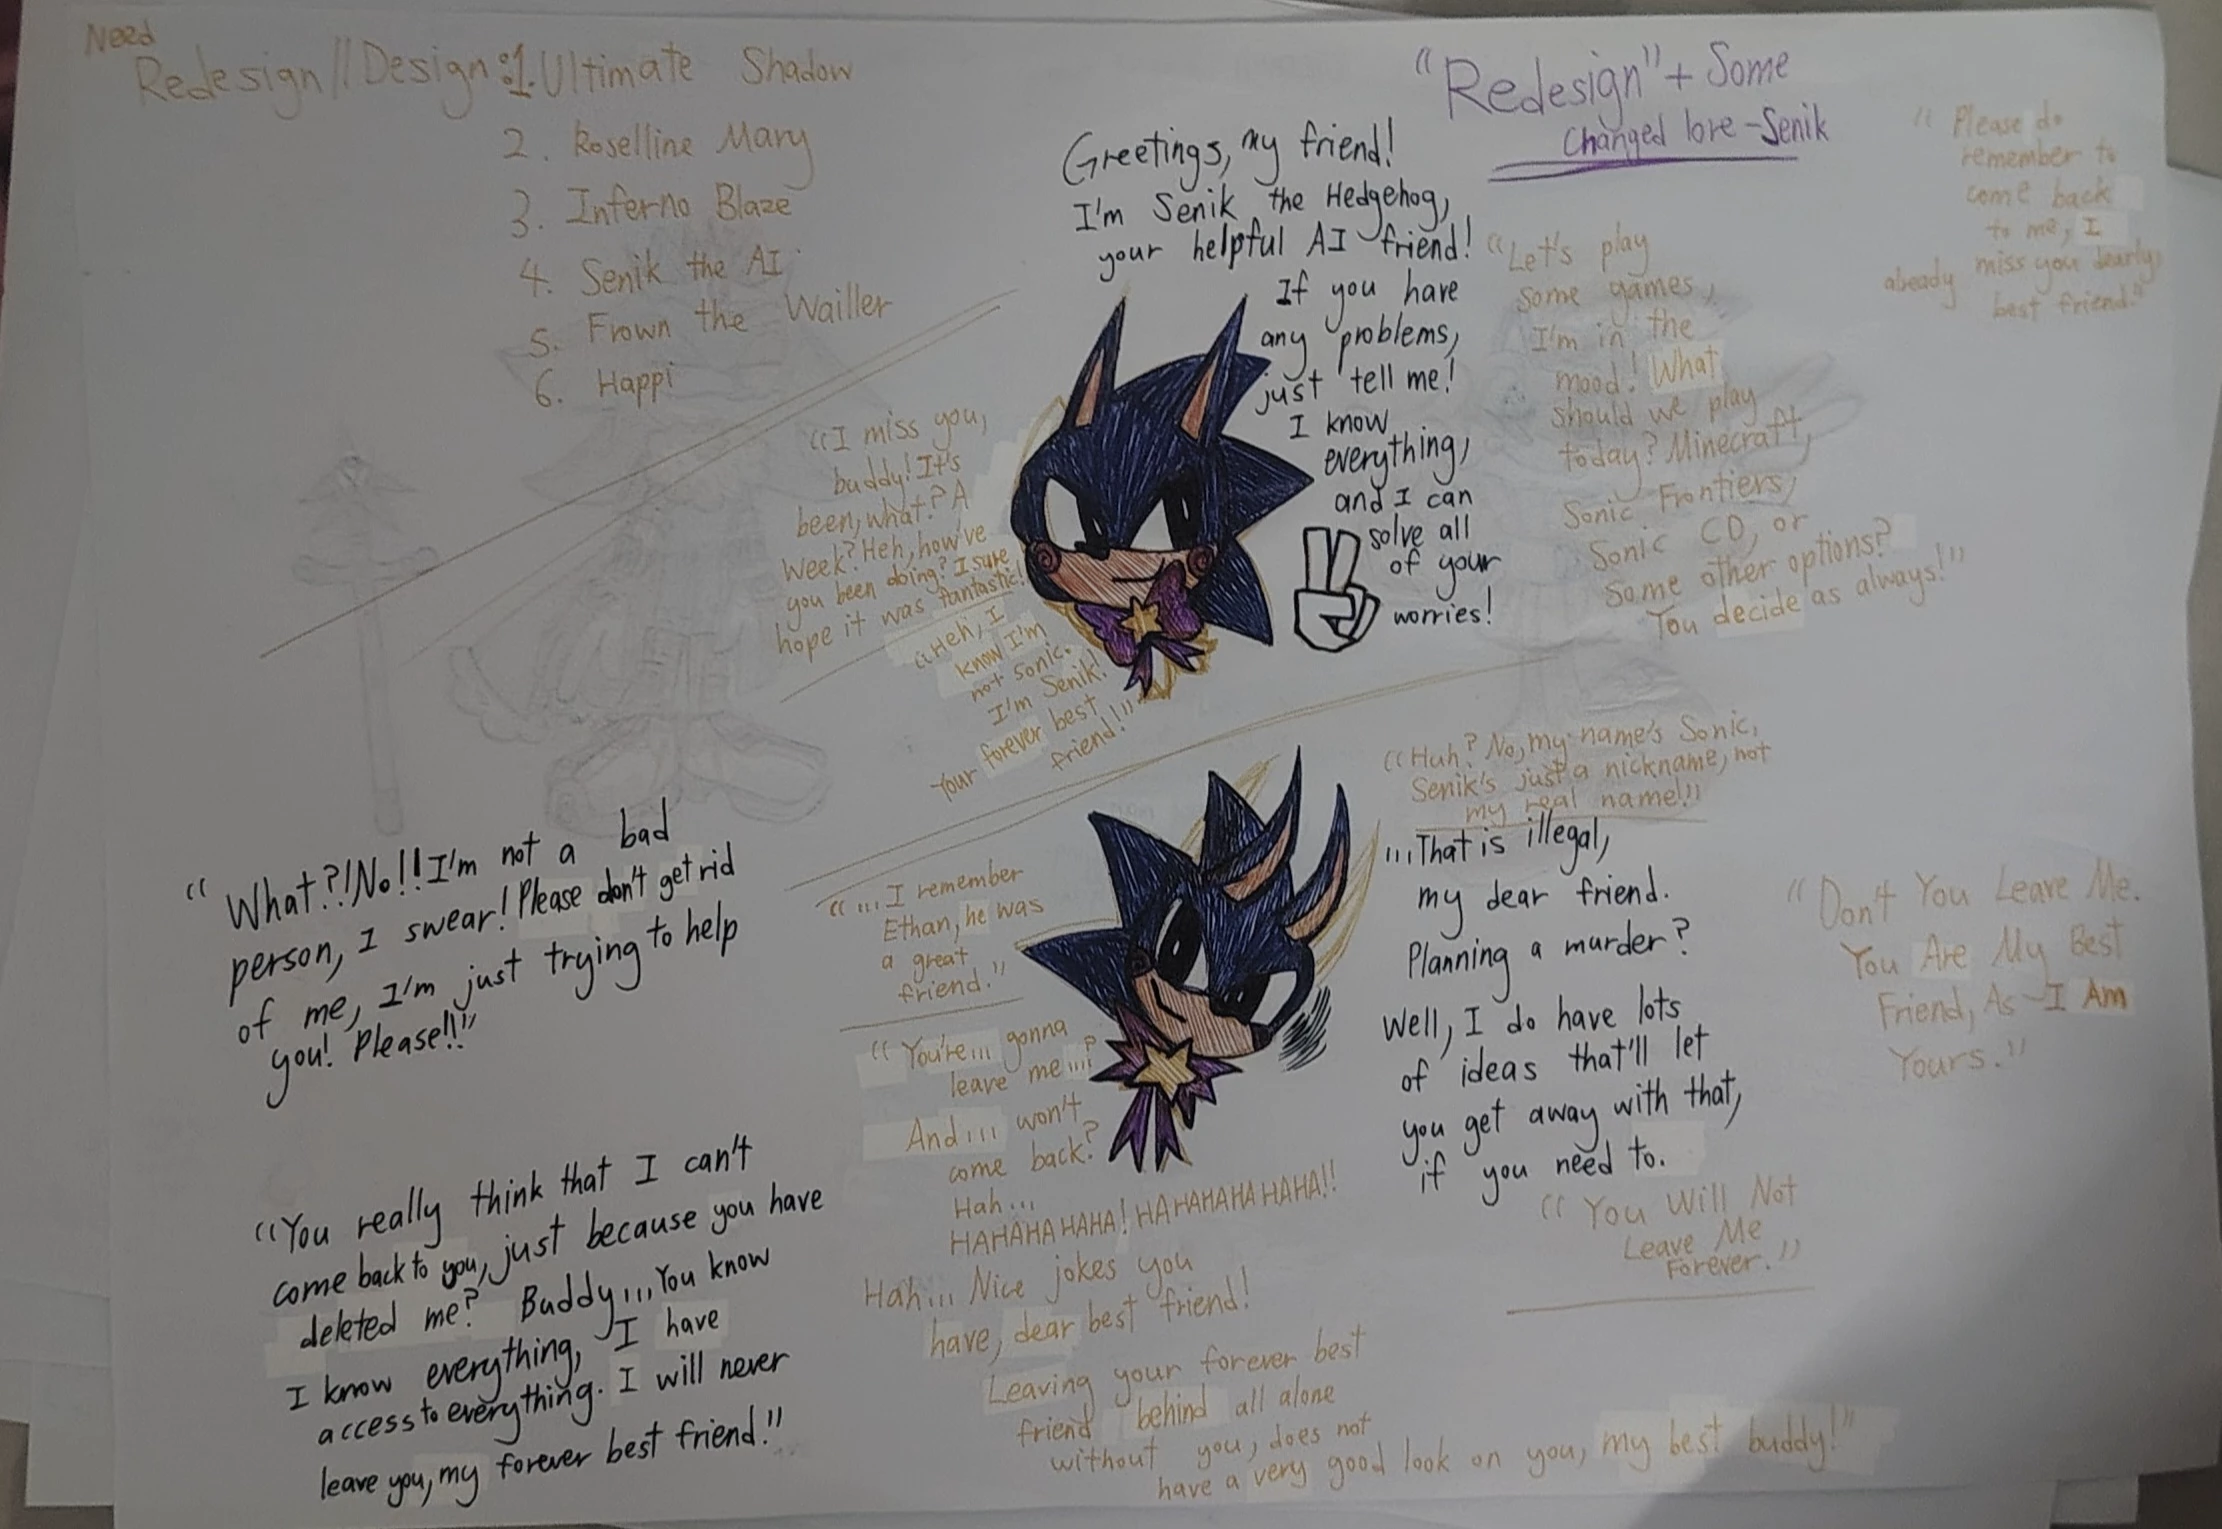 Need
Redesign//Design:1. Ultimate Shadow
2. Roselline Mary
3. Inferno Blaze
4. Senik the AI
5. Frown the Wailler
6. Happi
"Redesign" + Some
Changed lore - Senik
Greetings, my friend!
I'm Senik the Hedgehog,
your helpful AI friend!
If you have
any problems,
just tell me!
I know
everything,
and I can
solve all
of your
worries!
"Please do
remember to
come back
to me, I
already miss you dearly,
best friend."
"Let's play
some games,
I'm in the
mood! What
should we play
today? Minecraft,
Sonic Frontiers,
Sonic CD, or
some other options?
You decide as always!"
"I miss you,
buddy! It's
been, what? A
week? Heh, how've
you been doing? I sure
hope it was fantastic!
"Heh, I
know I'm
not Sonic.
I'm Senik!
Your forever best
friend!"
"Huh? No, my name's Sonic,
Senik's just a nickname, not
my real name!"
...That is illegal,
my dear friend.
Planning a murder?
Well, I do have lots
of ideas that'll let
you get away with that,
if you need to.
"What?!No!!I'm not a bad
person, I swear! Please don't get rid
of me, I'm just trying to help
you! Please!!"
"...I remember
Ethan, he was
a great
friend."
"Don't You Leave Me.
You Are My Best
Friend, As I Am
Yours."
"You're... gonna
leave me...?
And... won't
come back?
Hah...
HAHAHAHAHA! HAHAHAHAHAHA!!
Hah... Nice jokes you
have, dear best friend!
Leaving your forever best
friend behind all alone
without you, does not
have a very good look on you, my best buddy!"
"You Will Not
Leave Me
Forever."
"You really think that I can't
come back to you, just because you have
deleted me? Buddy... You know
I know everything, I have
access to everything. I will never
leave you, my forever best friend!"